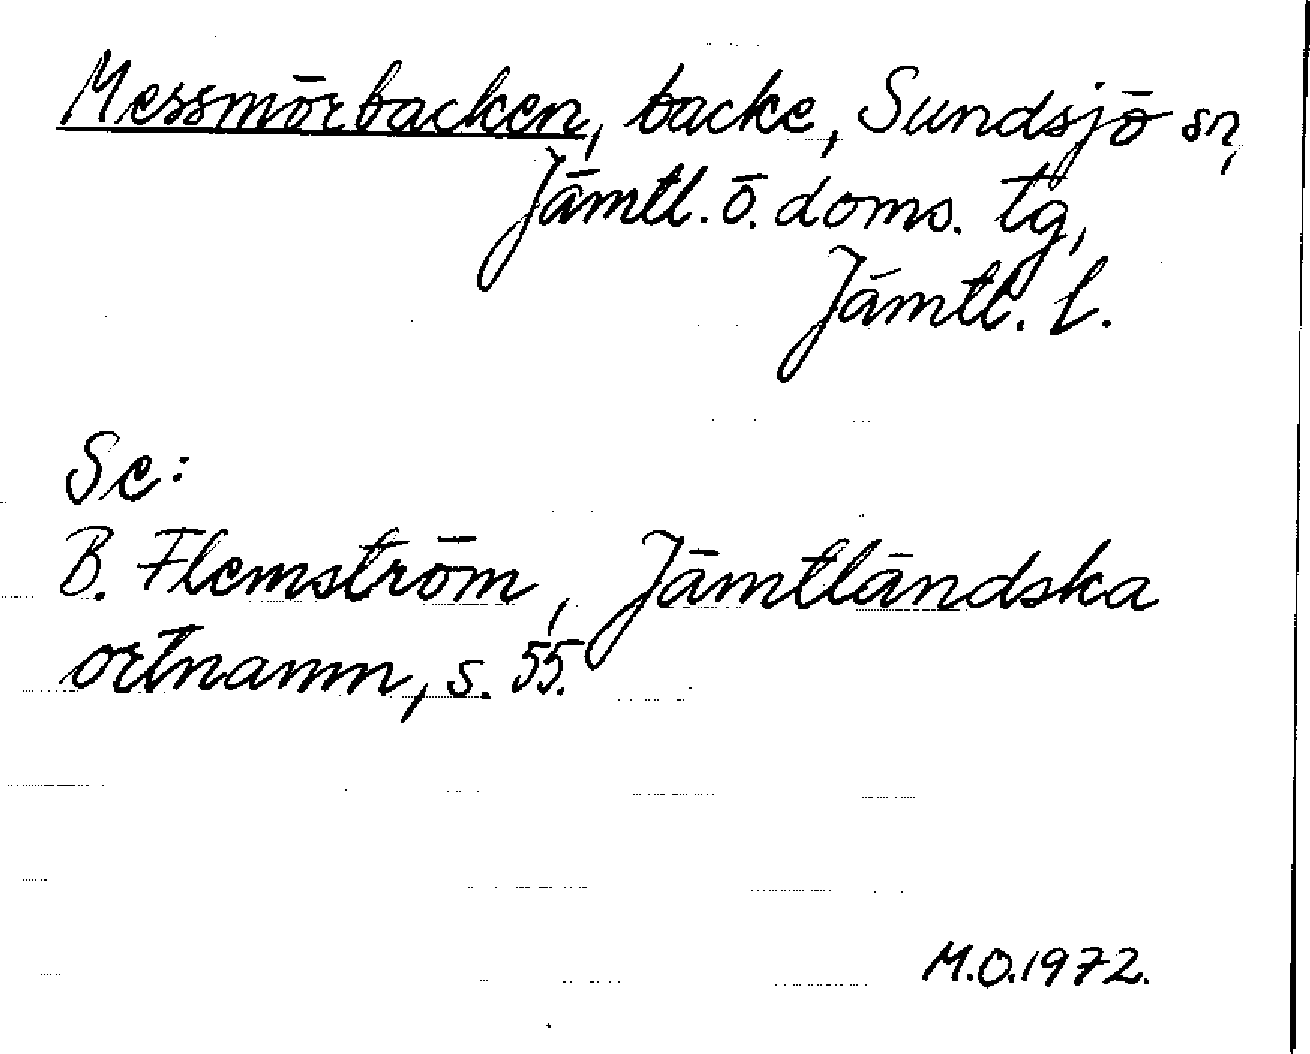 Messmörbacken, backe, Sundsjö sn,
Jämtl. ö. doms. tg,
Jämtl. l.
Se:
B. Flemström, Jämtländska
ortnamn, s. 55.
M.O.1972.